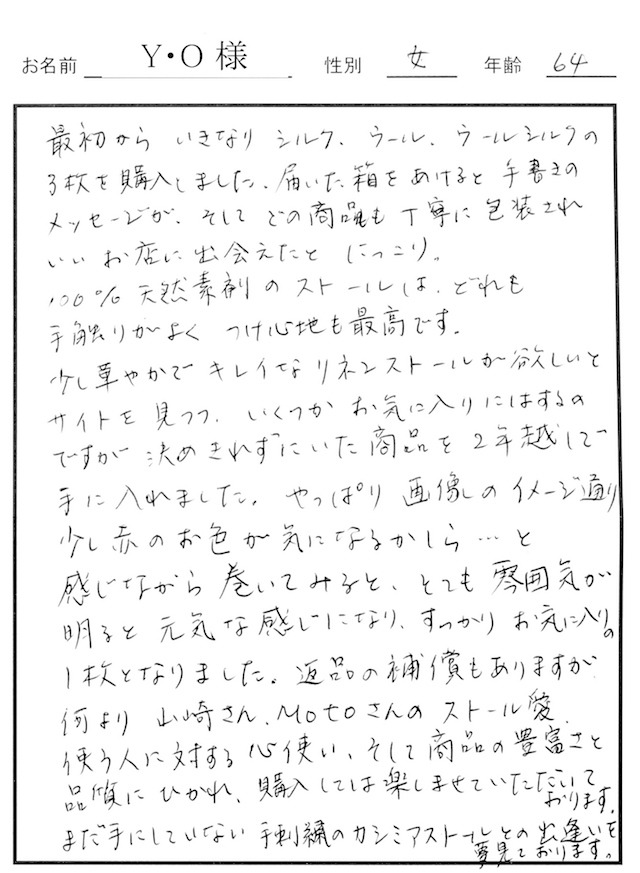 お名前 Y・O 様 性別 女 年齢 64
最初から いきなり シルク、ウール、ウールシルクの
3枚を購入しました。届いた箱をあけると 手書きの
メッセージが、そして どの商品も 丁寧に 包装され
いい お店に 出会えたと にっこり。
100% 天然素剤の ストールは、どれも
手触りがよく つけ心地も最高です。
少し華やかで キレイな リネンストールが欲しいと
サイトを 見つつ、いくつか お気に入りにはするの
ですが 決めきれずにいた 商品を 2年越しで
手に入れました。やっぱり 画像しの イメージ通り
少し赤の お色が 気になるかしら… と
感じながら 巻いてみると、とても 雰囲気が
明ると 元気な感じになり、すっかり お気に入りの
1枚となりました。返品の補償もありますが
何より 山崎さん、Motoさんの ストール愛、
使う人に対する 心使い、そして 商品の豊富さと
品質に ひかれ、購入しては楽しませていただいて
おります。
まだ手にしていない 手刺繍のカシミアストールとの 出逢いを
夢見ております。